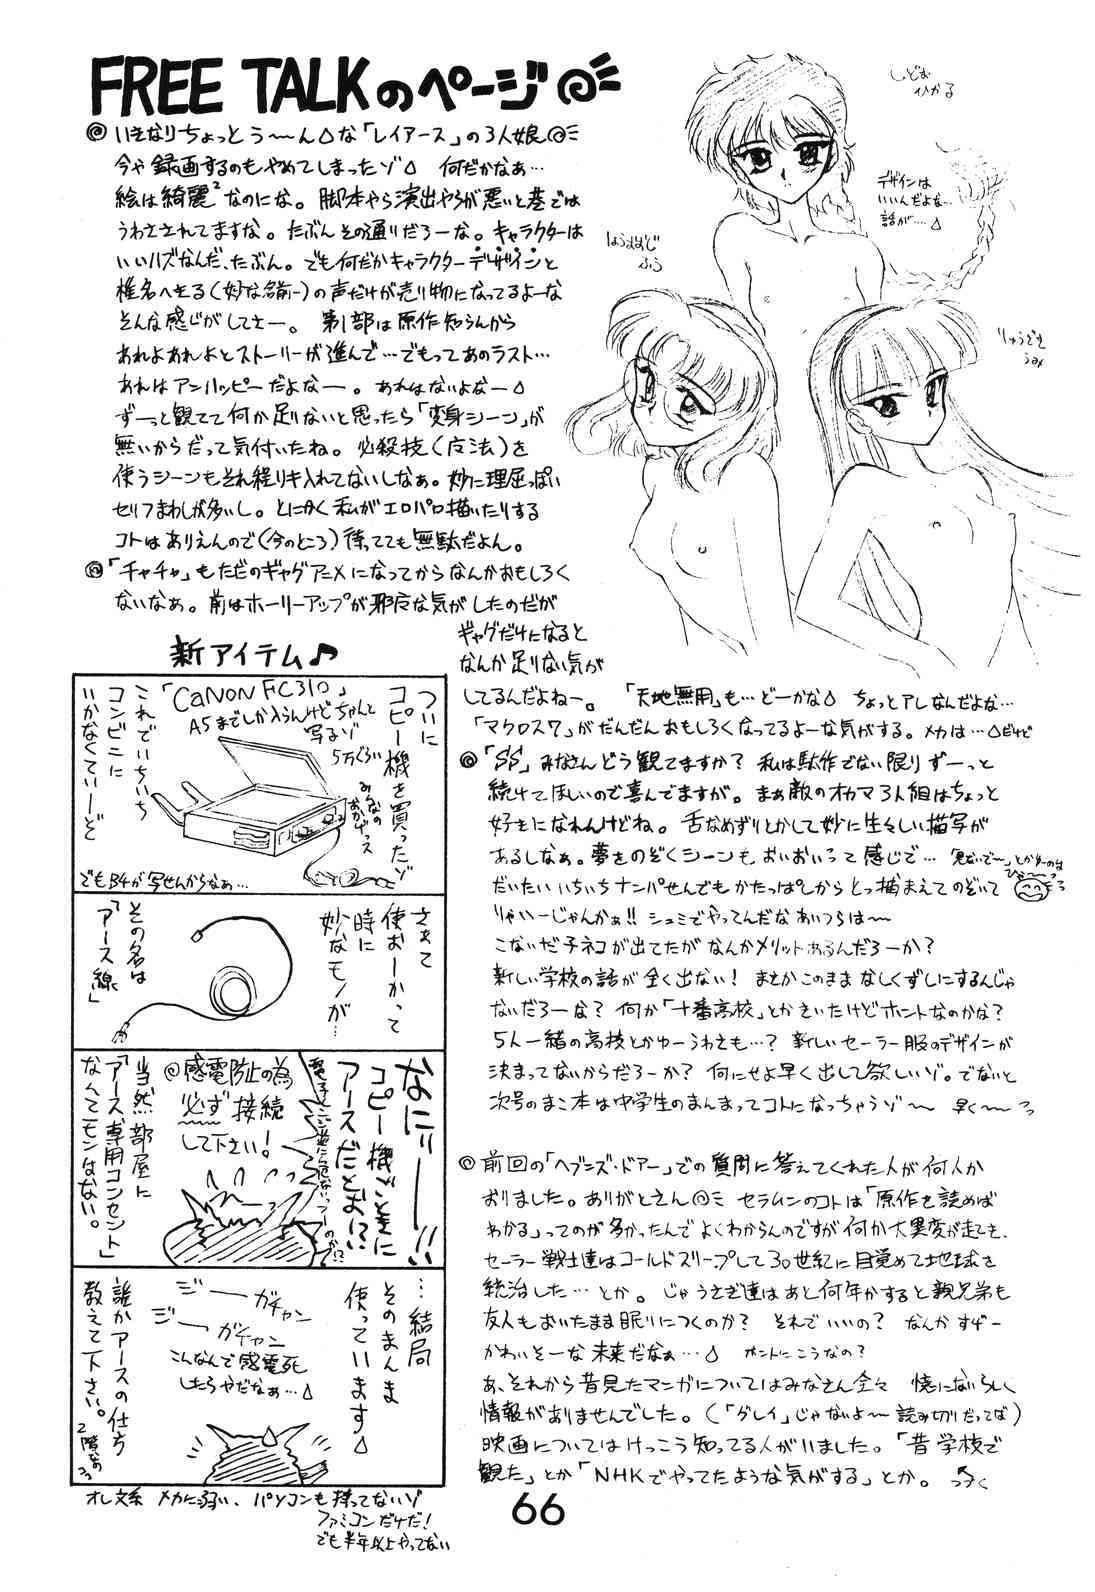 FREE TALKのページ
◎いきなりちょっとう〜〜んな「レイアース」の3人娘
今や録画するのもやめてしまったゾ 何だかなぁ…
絵は綺麗²なのにな。脚本やら演出やらが悪いと巷では
うわさされてますな。たぶんその通りだろーな。キャラクターは
いいハズなんだ、たぶん。でも何だかキャラクターデザインと
椎名へきる(妙な名前ー)の声だけが売り物になってるよーな
そんな感じがしてさー。第1部は原作知らんから
あれよあれよとストーリーが進んで…でもってあのラスト…
あれはアンハッピーだよなー。あれはないよなー
ずーっと観てて何か足りないと思ったら「変身シーン」が
無いからだって気付いたね。必殺技(魔法)を
使うシーンもそれ程リキ入れてないしなぁ。妙に理屈っぽい
セリフまわしが多いし。とにかく私がエロパロ描いたりする
コトはありえんので(今のところ)待ってても無駄だよん。
◎「チャチャ」もただのギャグアニメになってからなんかおもしろく
ないなぁ。前はホーリーアップが邪魔な気がしたのだが
ギャグだけになると
なんか足りない気が
してるんだよねー。「天地無用」も…どーかな ちょっとアレなんだよな…
「マクロス7」がだんだんおもしろくなってるよーな気がする。メカは…だけど
しどう
ひかる
デザインは
いいんだよな…
話が…
ほうおうじ
ふう
りゅうざき
うみ
新アイテム♪
ついに
コピー機を買ったゾ
「CaNON FC310」
A5までしか入らんけどちゃんと
写るゾ
5万ぐらい
みんなの
おかげッス
これでいちいち
コンビニに
いかなくていーど
でもB4が写せんからなぁ…
さぁて
使おーかって
時に
妙なモノが…
その名は
「アース線」
なにぃーー!!
コピー機ごときに
アースだとぉ!?
◎感電防止の為
必ず接続
して下さい!
当然部屋に
「アース専用コンセント」
なんてモンはない。
…結局
そのまんま
使っています
ジーーガチャン
ジーーガチャン
こんなんで感電死
したらやだなぁ…
誰かアースの仕方
教えて下さい。
2階なの
オレ文系 メカに弱い、パソコンも持ってないゾ
ファミコンだけだ!
でも半年以上やってない
◎「SS」みなさんどう観てますか?私は駄作でない限りずーっと
続けてほしいので喜んでますが。まぁ敵のオカマ3人組はちょっと
好きになれんけどね。舌なめずりとかして妙に生々しい描写が
あるしなぁ。夢をのぞくシーンもおいおいって感じで…
だいたいいちいちナンパせんでもかたっぱしからとっ捕まえてのぞいて
りゃいーじゃんかぁ!!シュミでやってんだなあいつらは〜〜
こないだ子ネコが出てたがなんかメリットあるんだろーか?
新しい学校の話が全く出ない!まさかこのままなしくずしにするんじゃ
ないだろーな?何か「十番高校」とかきいたけどホントなのかな?
5人一緒の高校とかゆーうわさも…?新しいセーラー服のデザインが
決まってないからだろーか?何にせよ早く出して欲しいゾ。でないと
次号のまこ本は中学生のまんまってコトになっちゃうゾ〜〜 早く〜
◎前回の「ヘブンズ・ドアー」での質問に答えてくれた人が何人か
おりました。ありがとさん セラムンのコトは「原作を読めば
わかる」ってのが多かったんでよくわからんのですが何か大異変が起きて、
セーラー戦士達はコールドスリープして30世紀に目覚めて地球を
統治した…とか。じゃうさぎ達はあと何年かすると親兄弟も
友人もおいたまま眠りにつくのか?それでいいの?なんかすげー
かわいそーな未来だなぁ… ホントにこうなの?
あ、それから昔見たマンガについてはみなさん全々 懐にないらしく
情報がありませんでした。(「グレイ」じゃないよ〜読み切りだってば)
映画についてはけっこう知ってる人がいました。「昔学校で
観た」とか「NHKでやってたような気がする」とか。 つづく
66